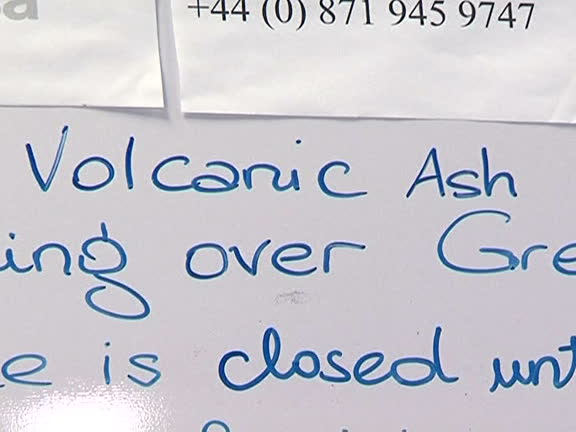 +44 (0) 871 945 9747
Volcanic Ash
ing over Gre
e is closed unt